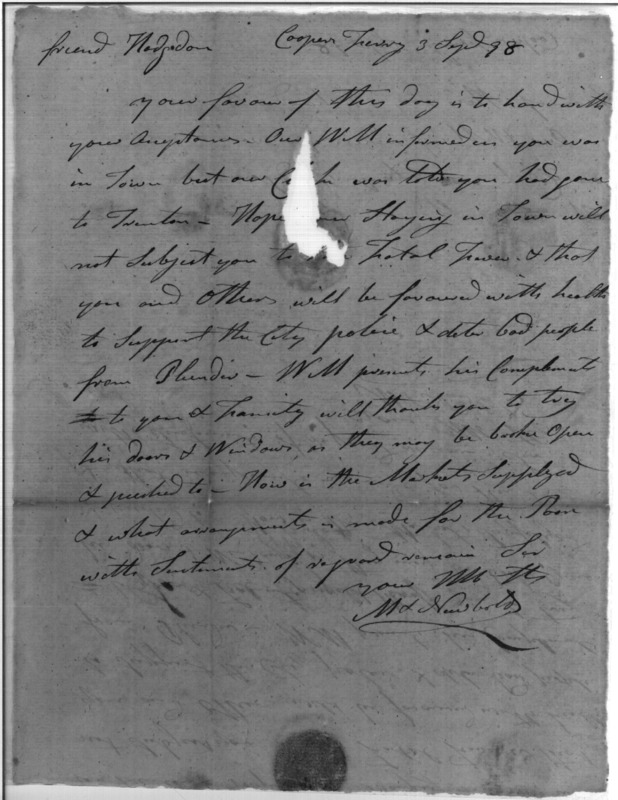 friend Hodgdon Coopers Ferry 3 Sepd 98
your favour of this day is to hand with
your Acceptances - Our WM informed us you was
in Town but our was told you had gone
to Trenton - Hope your Staying in Town will
not Subject you to Fatal Fever & that
you and others will be favoured with health
to Support the City police & deter bad people
from Plunder - WM presents his Compliments
to you & Family will thank you to try
his doors & Windows, as they may be broke Open
& pushed to - How is the Markets Supplyed
& what arrangements is made for the Poor
with Sentiments of reguard remain Sir
your
M & Newbold